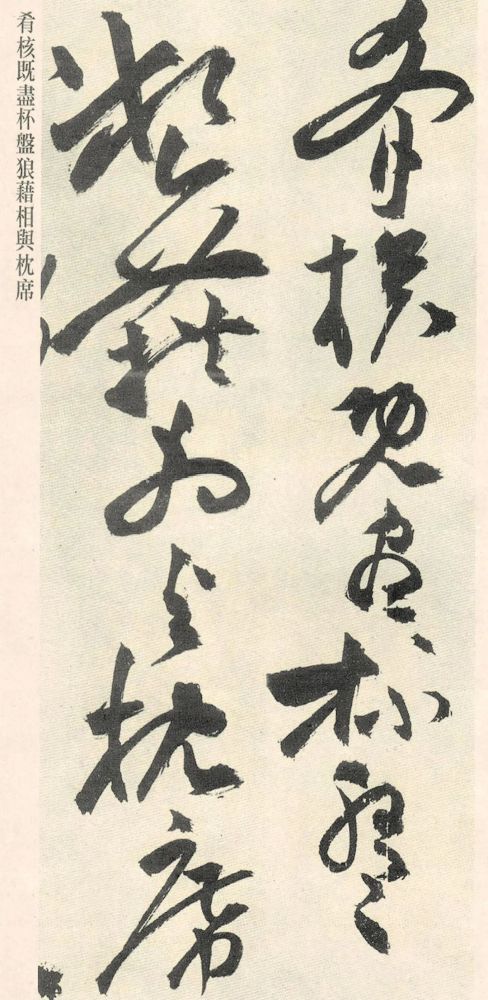 肴核既盡杯盤
狼藉相與枕席
肴核既盡杯盤狼藉相與枕席